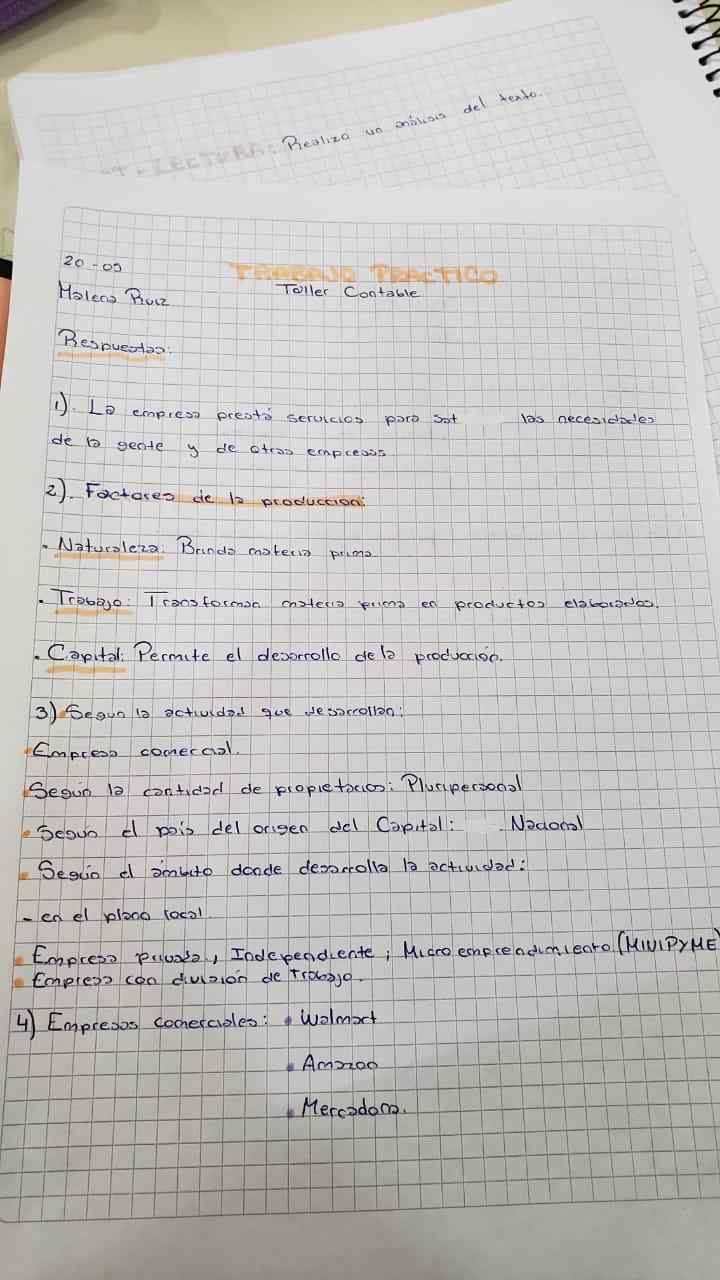 T - LECTURA: Realiza un análisis del texto.
20-09
TRABAJO PRACTICO
Malena Ruiz
Taller Contable
Respuestas:
1). La empresa prestá servicios para sat las necesidades
de la gente y de otras empresas
2). Factores de la produccion:
• Naturaleza: Brinda materia prima
• Trabajo: Transforman materia prima en productos elaborados.
• Capital: Permite el desarrollo de la producción.
3) Segun la actividad que desarrollan:
Empresa comercial.
Según la cantidad de propietarios: Pluripersonal
• Segun el país del origen del Capital: Nacional
• Según el ámbito donde desarrolla la actividad:
- en el plano local.
• Empresa privada, Independiente; Micro emprendimiento (MINIPYME)
• Empresa con división de trabajo.
4) Empresas comerciales: • Walmart
• Amazon
• Mercadona.